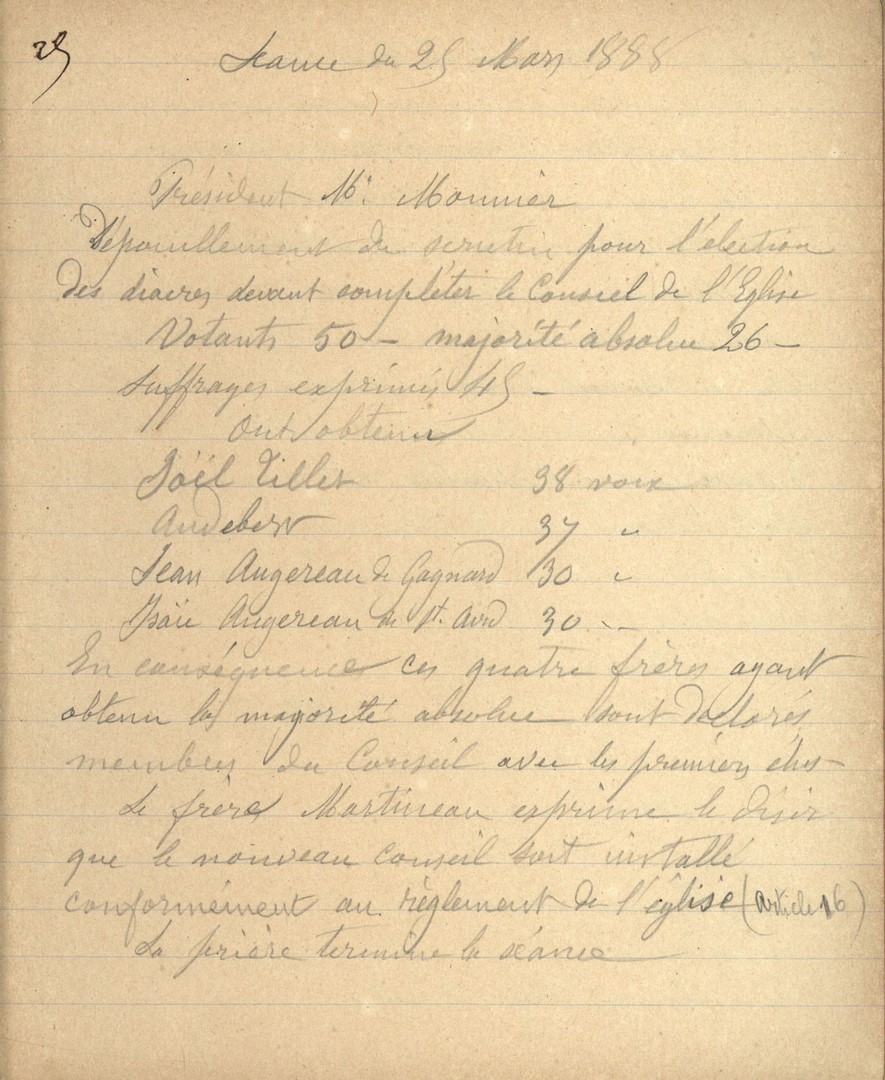 25
Séance du 25 Mars 1888
Président Mr. Monnier
Dépouillement du scrutin pour l'élection
des diacres devant compléter le Conseil de l'Eglise
Votants 50 - majorité absolue 26 -
Suffrages exprimés 45 -
Ont obtenu
Joël Tillet 38 voix
Audebert 37 "
Jean Augereau de Gagnard 30 "
Isaïe Augereau de St. 30 "
En conséquence ces quatre frères ayant
obtenu la majorité absolue sont déclarés
membres du Conseil avec les premiers élus -
Le frère Martineau exprime le désir
que le nouveau Conseil soit installé
conformément au règlement de l'église (article 16)
La prière termine la séance